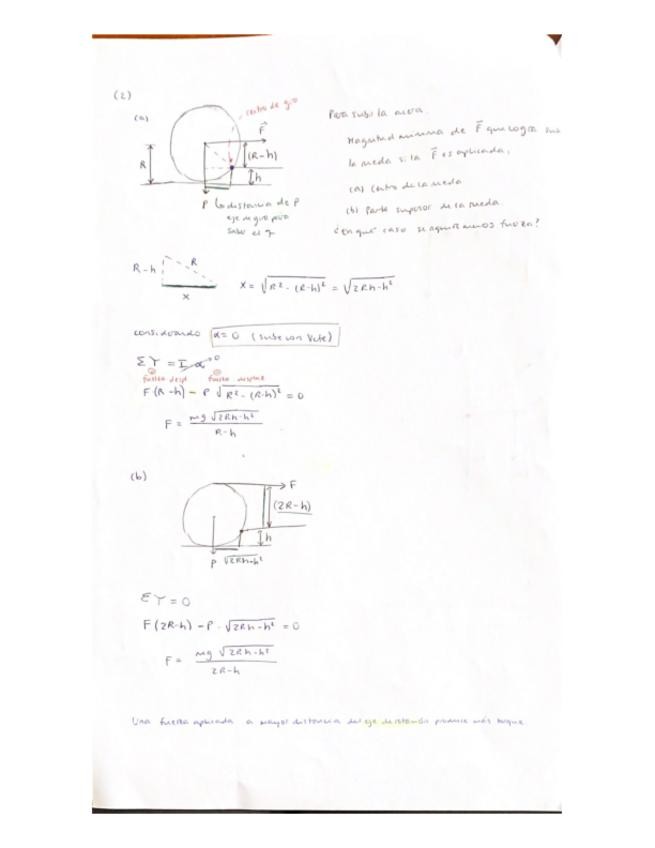 (2)
(a)
centro de giro
F
R
(R-h)
h
P
la distancia de P
eje de giro para
Para subir la acera.
Magnitud mínima de F que logra
la rueda si la F es aplicada,
(a) Centro de la rueda
(b) Parte superior de la rueda.
¿en qué caso se aplica menos fuerza?
R-h
R
x
x = √R² - (R-h)² = √2Rh-h²
considerando α = 0 (sube con Vcte)
Στ = Iα 0
F(R-h) - P √R² - (R-h)² = 0
F = mg √2Rh-h² / R-h
(b)
F
(2R-h)
h
P √2Rh-h²
Στ = 0
F(2R-h) - P · √2Rh-h² = 0
F = mg √2Rh-h² / 2R-h
Una fuerza aplicada a mayor distancia del eje de rotación produce más torque